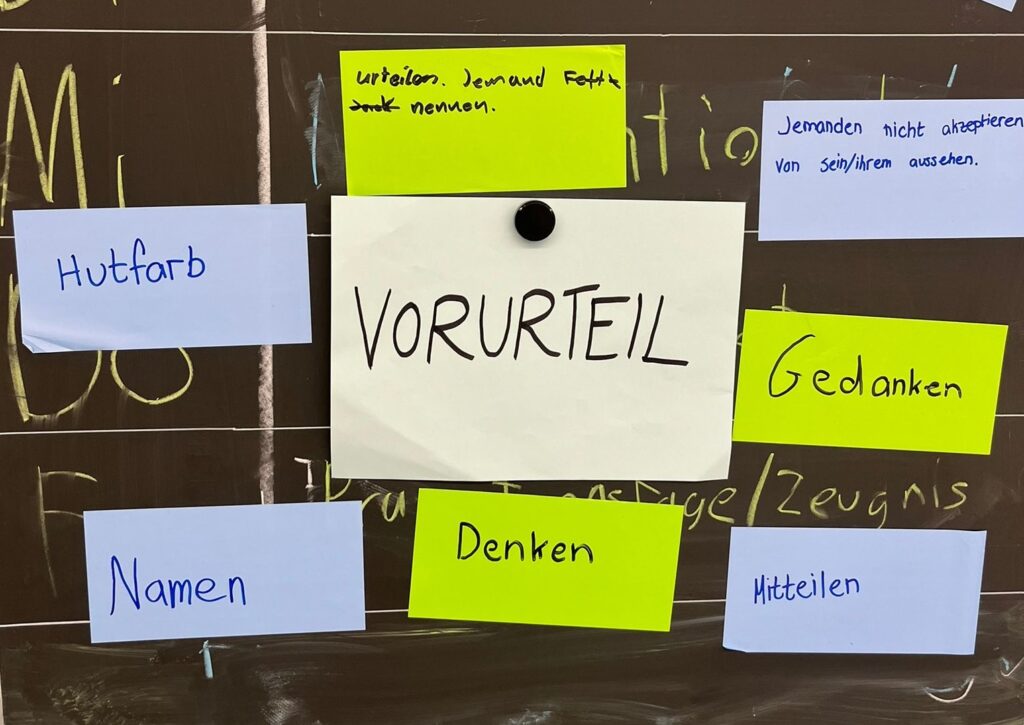 Mi
urteilen. Jemand
nennen.
tio
Jemanden nicht akzeptieren
von sein/ihrem aussehen.
Hutfarb
VORURTEIL
Do
Gedanken
F
/Zeugnis
Namen
Denken
Mitteilen